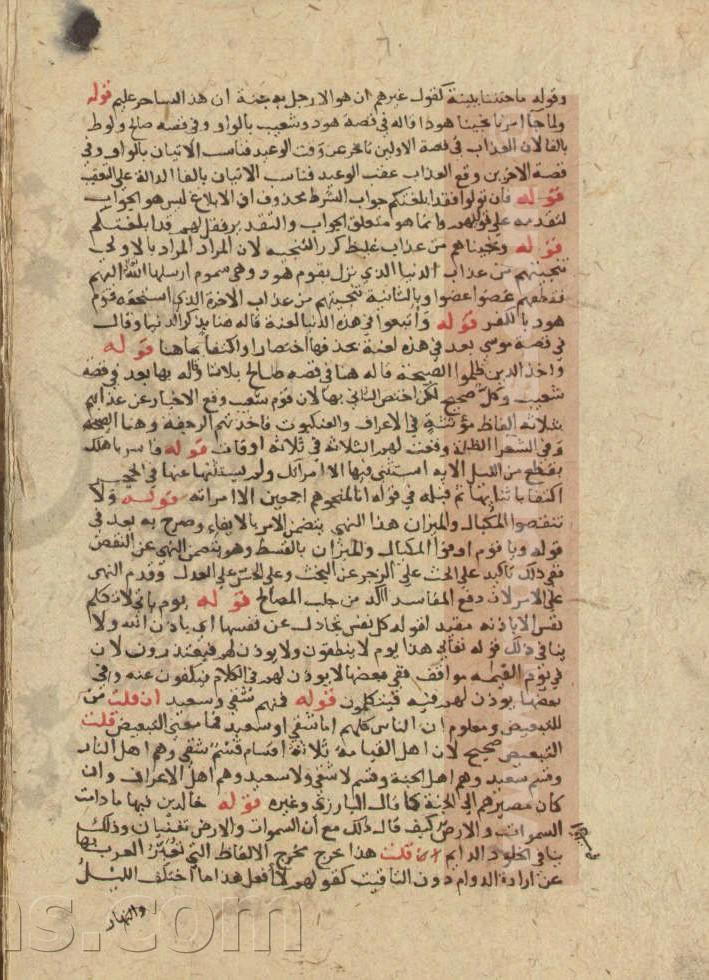 وقوله ما جئتنا ببينة كقول غيرهم ان هو الا رجل به جنة ان هذا لساحر عليم قوله
ولما جا امرنا نجينا هودا قاله في قصة هود وشعيب بالواو وفي قصه صالح ولوط
بالفا لان العذاب في قصة الاولين تاخر عن وقت الوعيد فناسب الاتيان بالواو وفي
قصة الاخرين وقع العذاب عقب الوعيد فناسب الاتيان بالفا الدالة على التعقيب
قوله فان تولوا فقد ابلغتكم جواب الشرط محذوف اذ الابلاغ ليس هو الجواب
لتقدمه على توليهم وانما هو متعلق الجواب والتقدير فقل لهم قد ابلغتكم
قوله ونجيناهم من عذاب غليظ كرر التنجيه لان المراد بالاولى
تنجيتهم من عذاب الدنيا الذي نزل بقوم هود وهي سموم ارسلها الله اليهم
فقطعهم عضوا عضوا وبالثانية تنجيتهم من عذاب الاخرة الذي استحقه قوم
هود بالكفر قوله واتبعوا في هذه الدنيا لعنة قاله هنا بذكر الدنيا وقال
في قصة موسى بعد في هذه لعنة بحذفها اختصارا واكتفا بما هنا قوله
واخذ الذين ظلموا الصيحة قاله هنا في قصه صالح بلا تا وقاله بها بعد في قصة
شعيب وكل صحيح لكن اختص الثاني بها لان قوم شعيب وقع الاخبار عن عذابهم
بثلاثة الفاظ مؤنثة في الاعراف والعنكبوت فاخذتهم الرجفه وهنا الصيحه
وفي الشعرا الظلة وقعت لهم الثلاثة في ثلاثة اوقات قوله فاسر باهلك
بقطع من الليل الايه استثنى فيها الا امراتك ولم يستثنها عنها في الحجر
اكتفا باستثنايها ثم قبله في قوله انا لمنجوهم اجمعين الا امراته قوله ولا
تنقصوا المكيال والميزان هذا النهي يتضمن الامر بالايفاء وصرح به بعد في
قوله ويا قوم اوفوا المكيال والميزان بالقسط وهو يتضمن النهي عن النقص
ففي ذلك تاكيد على الحث على الزجر عن البخس وعلى الحث على العدل وقدم النهى
على الامر لان دفع المفاسد اكد من جلب المصالح قوله يوم ياتي لا تكلم
نفس الا باذنه مقيد لقوله كل نفس تجادل عن نفسها اي باذن الله ولا
ينافي ذلك قوله تعالى هذا يوم لا ينطقون ولا يوذن لهم فيعتذرون لان
في يوم القيمه مواقف ففي بعضها لا يوذن لهم في الكلام فيكفون عنه وفي
بعضها يوذن لهم فيه فيتكلمون قوله فمنهم شقي وسعيد ان قلت من
للتبعيض ومعلوم ان الناس كلهم اما شقي او سعيد فما معنى التبعيض قلت
التبعيض صحيح لان اهل القيامة ثلاثة اقسام قسم شقي وهم اهل النار
وقسم سعيد وهم اهل الجنة وقسم لا شقي ولا سعيد وهم اهل الاعراف وان
كان مصيرهم الى الجنة كما قال البارزي وغيره قوله خالدين فيها ما دامت
السموات والارض كيف قال ذلك مع ان السموات والارض تفنيان وذلك
ينافي الخلود الدايم قلت هذا خرج مخرج الالفاظ التي تعبر العرب بها
عن ارادة الدوام دون التاقيت كقولهم لا افعل هذا ما اختلف الليل
والنهار
ns.com